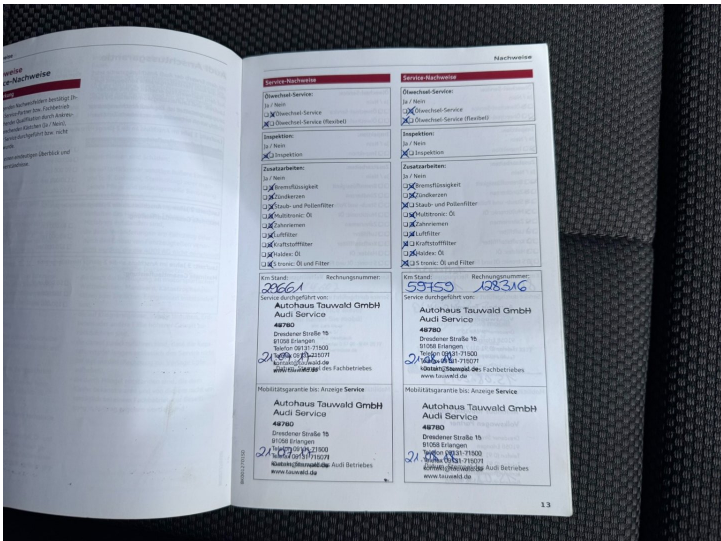 weise
ce-Nachweise
Nachweise
Service-Nachweise
Ölwechsel-Service:
Ja / Nein
Ölwechsel-Service
Ölwechsel-Service (flexibel)
Inspektion:
Ja / Nein
Inspektion
Zusatzarbeiten:
Ja / Nein
Bremsflüssigkeit
Zündkerzen
Staub- und Pollenfilter
Multitronic: Öl
Zahnriemen
Luftfilter
Kraftstofffilter
Haldex: Öl
S tronic: Öl und Filter
Km Stand: Rechnungsnummer:
29661
Service durchgeführt von:
Autohaus Tauwald GmbH
Audi Service
48780
Dresdener Straße 15
91058 Erlangen
Telefon 09131-71500
Telefax 09131-715071
kontakt@tauwald.de
www.tauwald.de
Mobilitätsgarantie bis: Anzeige Service
Autohaus Tauwald GmbH
Audi Service
48780
Dresdener Straße 15
91058 Erlangen
Telefon 09131-71500
Telefax 09131-715071
Audi Betriebes
www.tauwald.de
Service-Nachweise
Ölwechsel-Service:
Ja / Nein
Ölwechsel-Service
Ölwechsel-Service (flexibel)
Inspektion:
Ja / Nein
Inspektion
Zusatzarbeiten:
Ja / Nein
Bremsflüssigkeit
Zündkerzen
Staub- und Pollenfilter
Multitronic: Öl
Zahnriemen
Luftfilter
Kraftstofffilter
Haldex: Öl
S tronic: Öl und Filter
Km Stand: Rechnungsnummer:
59759 128316
Service durchgeführt von:
Autohaus Tauwald GmbH
Audi Service
48780
Dresdener Straße 15
91058 Erlangen
Telefon 09131-71500
Telefax 09131-715071
des Fachbetriebes
www.tauwald.de
Mobilitätsgarantie bis: Anzeige Service
Autohaus Tauwald GmbH
Audi Service
48780
Dresdener Straße 15
91058 Erlangen
Telefon 09131-71500
Telefax 09131-715071
21.08.18
Audi Betriebes
www.tauwald.de
13